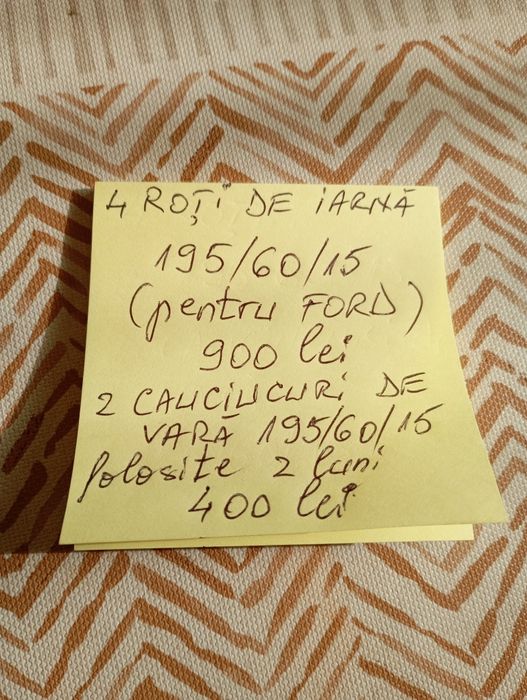 4 ROȚI DE IARNĂ
195/60/15
(pentru FORD)
900 lei
2 CAUCIUCURI DE
VARĂ 195/60/15
folosite 2 luni
400 lei